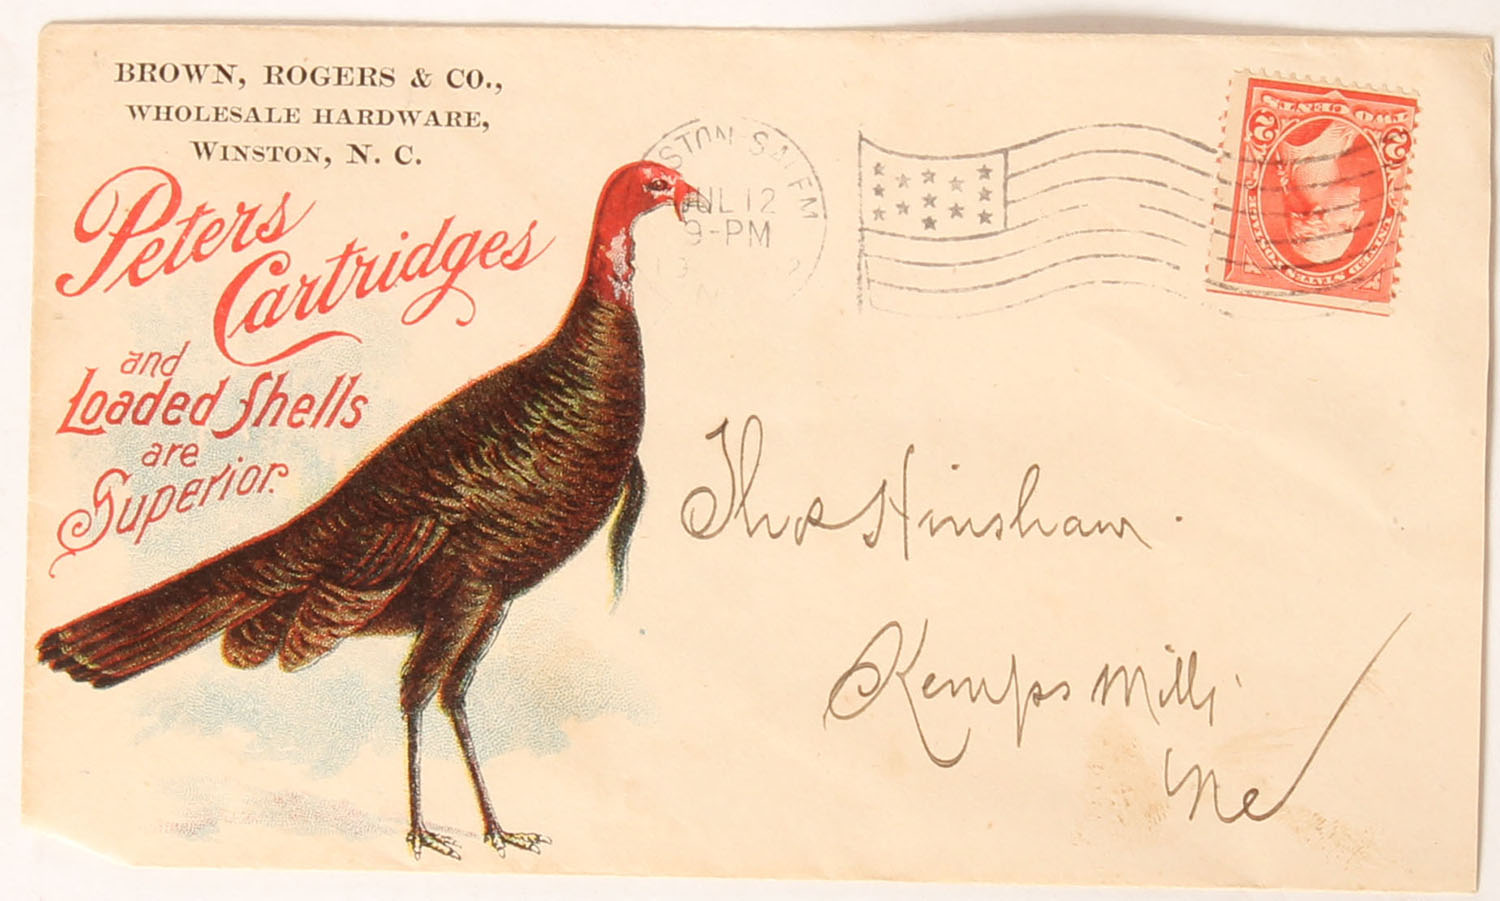 BROWN, ROGERS & CO.,
WHOLESALE HARDWARE,
WINSTON, N. C.
Peters
Cartridges
and
Loaded Shells
are
Superior.
STON-SALEM
JUL 12
9-PM
2
2
Thos Hinshaw.
Kemps Mills